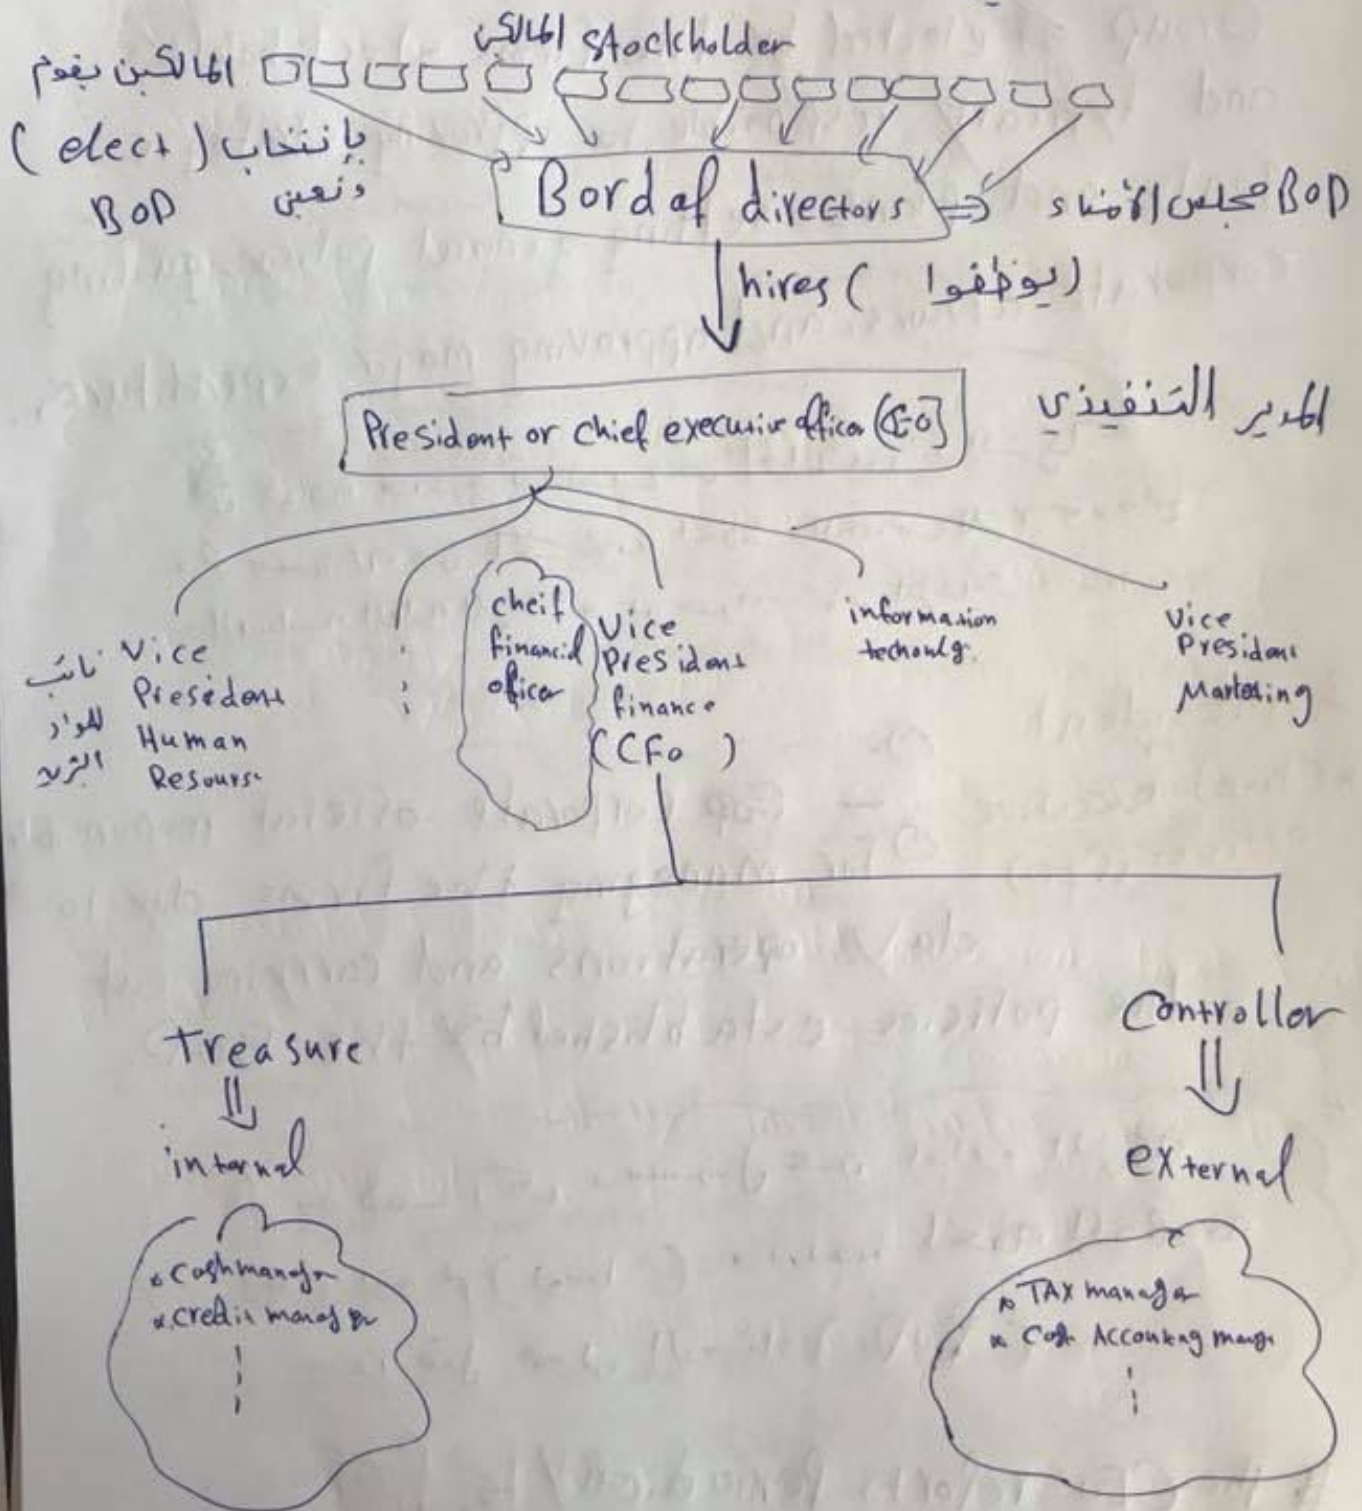 المالكين stockholder
المالكين يقوم
بإنتخاب (elect)
ونعين BOD
Bord of directors
مجلس الأمناء BOD
hires (يوظفوا)
President or chief executive officer (CEO)
المدير التنفيذي
نائب
للموارد
Vice
President
Human
Resourse
cheif
financial
oficer
Vice
President
finance
(CFO)
information
Vice
President
Marketing
treasure
internal
* Cash manager
* credit manager
Controller
external
* TAX manager
* Cost Accounting manager